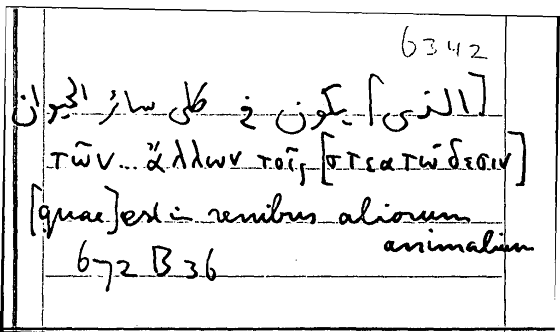 6342
[الذي] يكون في كلى سائر الحيوان
τῶν... ἄλλων τοῖς [στεατώδεσιν]
[quae] est in renibus aliorum
animalium
672 B 36